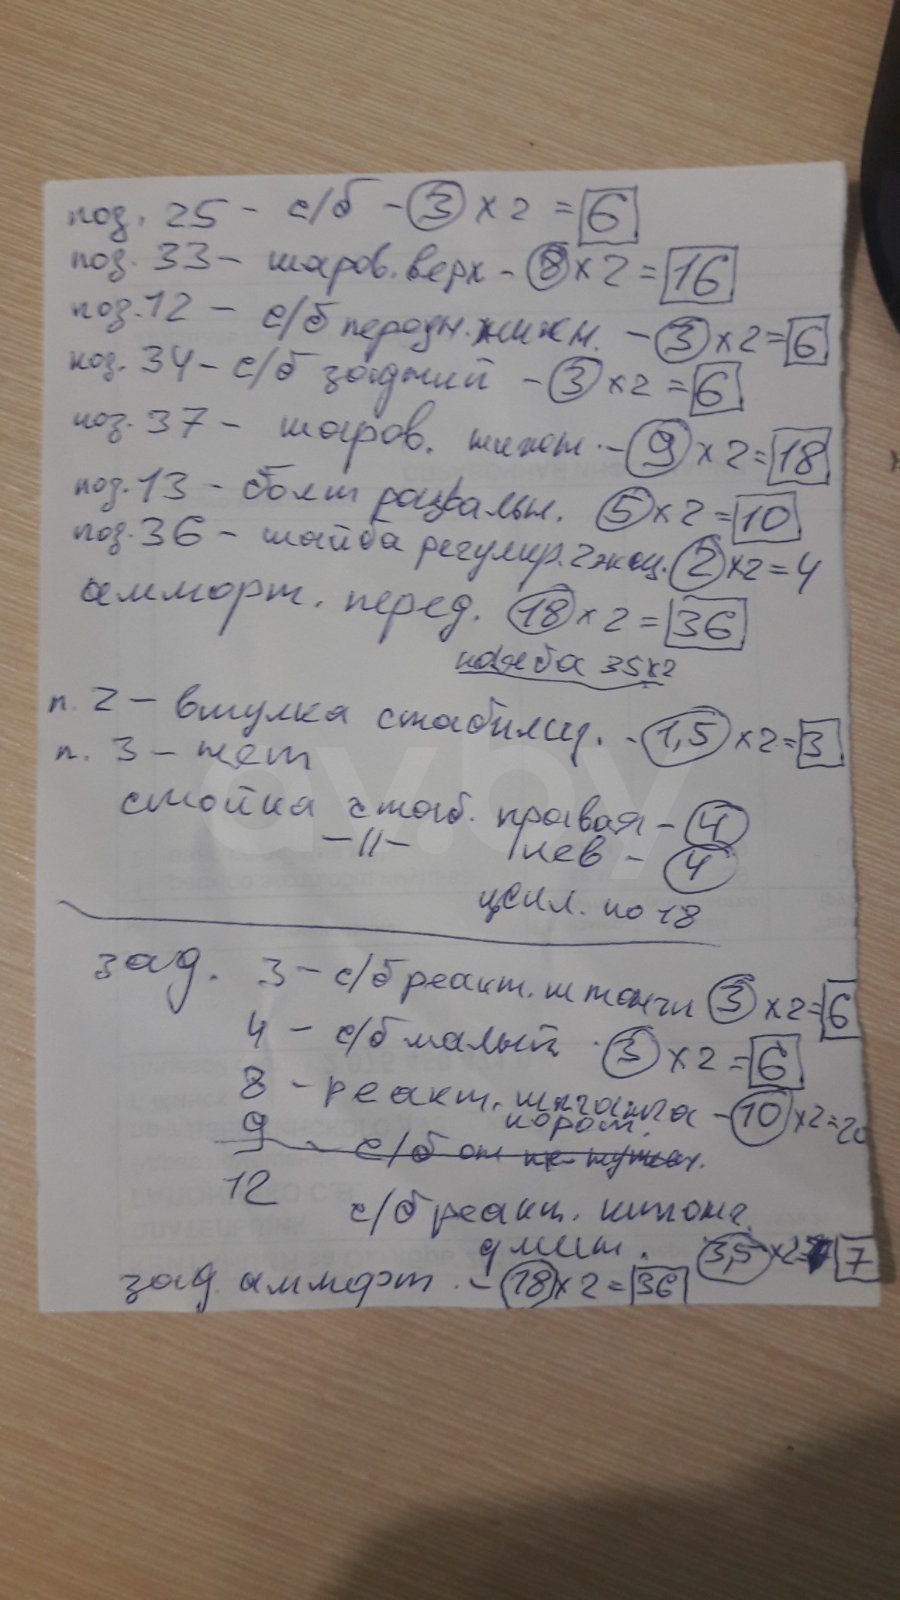 поз. 25 - с/б - 3 x 2 = 6
поз. 33 - шаров. верх - 8 x 2 = 16
поз. 12 - с/б передн. нижн. - 3 x 2 = 6
поз. 34 - с/б задний - 3 x 2 = 6
поз. 37 - шаров. нижн. - 9 x 2 = 18
поз. 13 - болт развальн. 5 x 2 = 10
поз. 36 - шайба регулир. 2 x 2 = 4
амморт. перед. 18 x 2 = 36
35x2
п. 2 - втулка стабилиз. - 1,5 x 2 = 3
п. 3 - нет
стойка стаб. правая - 4
-//- лев - 4
цсил. по 18
зад. 3 - с/б реакт. штанги 3 x 2 = 6
4 - с/б малый 3 x 2 = 6
8 - реакт. штанга - 10 x 2 = 20
корот.
9 - с/б от
12 с/б реакт. штанг.
длин. 3,5 x 2 = 7
зад. амморт. - 18 x 2 = 36
av.by